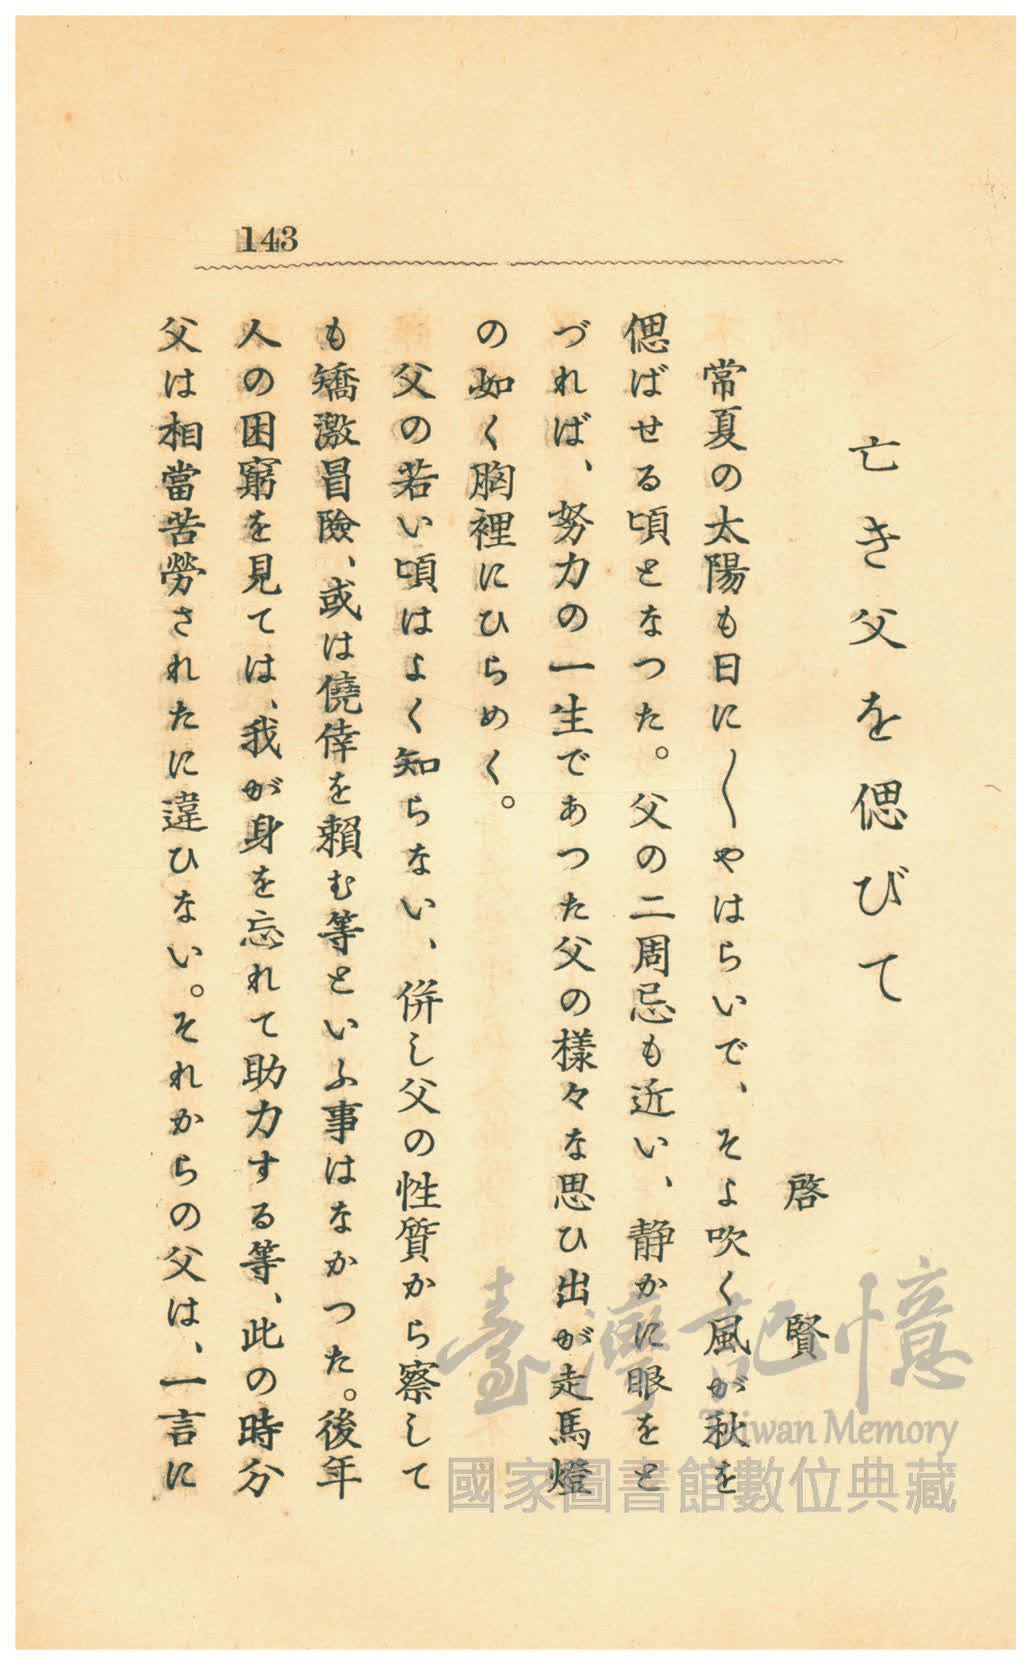 143
亡き父を偲びて
啓賢
常夏の太陽も日に〳〵やはらいで、そよ吹く風が秋を
偲ばせる頃となつた。父の二周忌も近い、静かに眼をと
づれば、努力の一生であつた父の様々な思ひ出が走馬燈
の如く胸裡にひらめく。
父の若い頃はよく知らない、併し父の性質から察して
も矯激冒險、或は僥倖を賴む等といふ事はなかつた。後年
人の困窮を見ては、我が身を忘れて助力する等、此の時分
父は相當苦勞されたに違ひない。それからの父は、一言に
臺灣記憶
Taiwan Memory
國家圖書館數位典藏